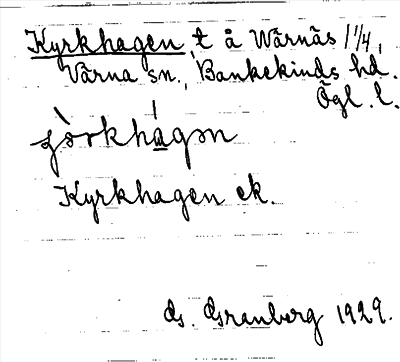 Kyrkhagen, t å Wärnäs 1 1/4,
Värna sn., Bankekinds hd.
Ögl. l.
Kyrkhagen ek.
Gs. Granberg 1929.